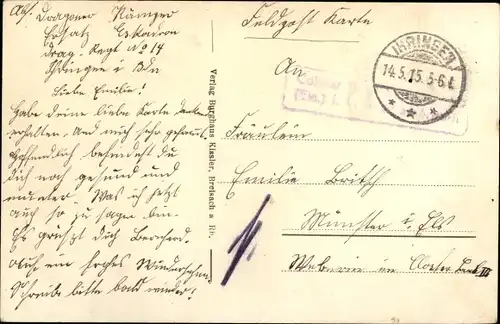 Abs. Dragoner Känzer
Ersatz Eskadron
Drag. Regt No 14
Ihringen i Bdn
Liebe Emilie!
Habe deine liebe Karte dankend
erhalten. Und mich sehr gefreut.
Hoffendlich befindest du
dich noch gesund und
munter. Was ich jetzt
auch so zu sagen bin.
Es grüßt dich Bernhard.
Auf ein frohes Wiedersehen
Schreibe bitte bald wieder!
Verlag Burghaus Kissler, Breisach a Rh.
Feldpost Karte
IHRINGEN
14.5.15. 5-6 N.
Colmar
(Els.)
An
Fräulein
Emilie Britsch
Münster i. Els
Weberin im